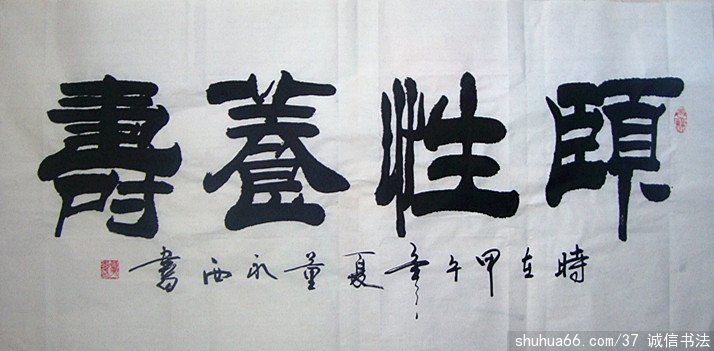 頤性養壽
時在甲午年之夏董永西書
shuhua66.com/37 诚信书法